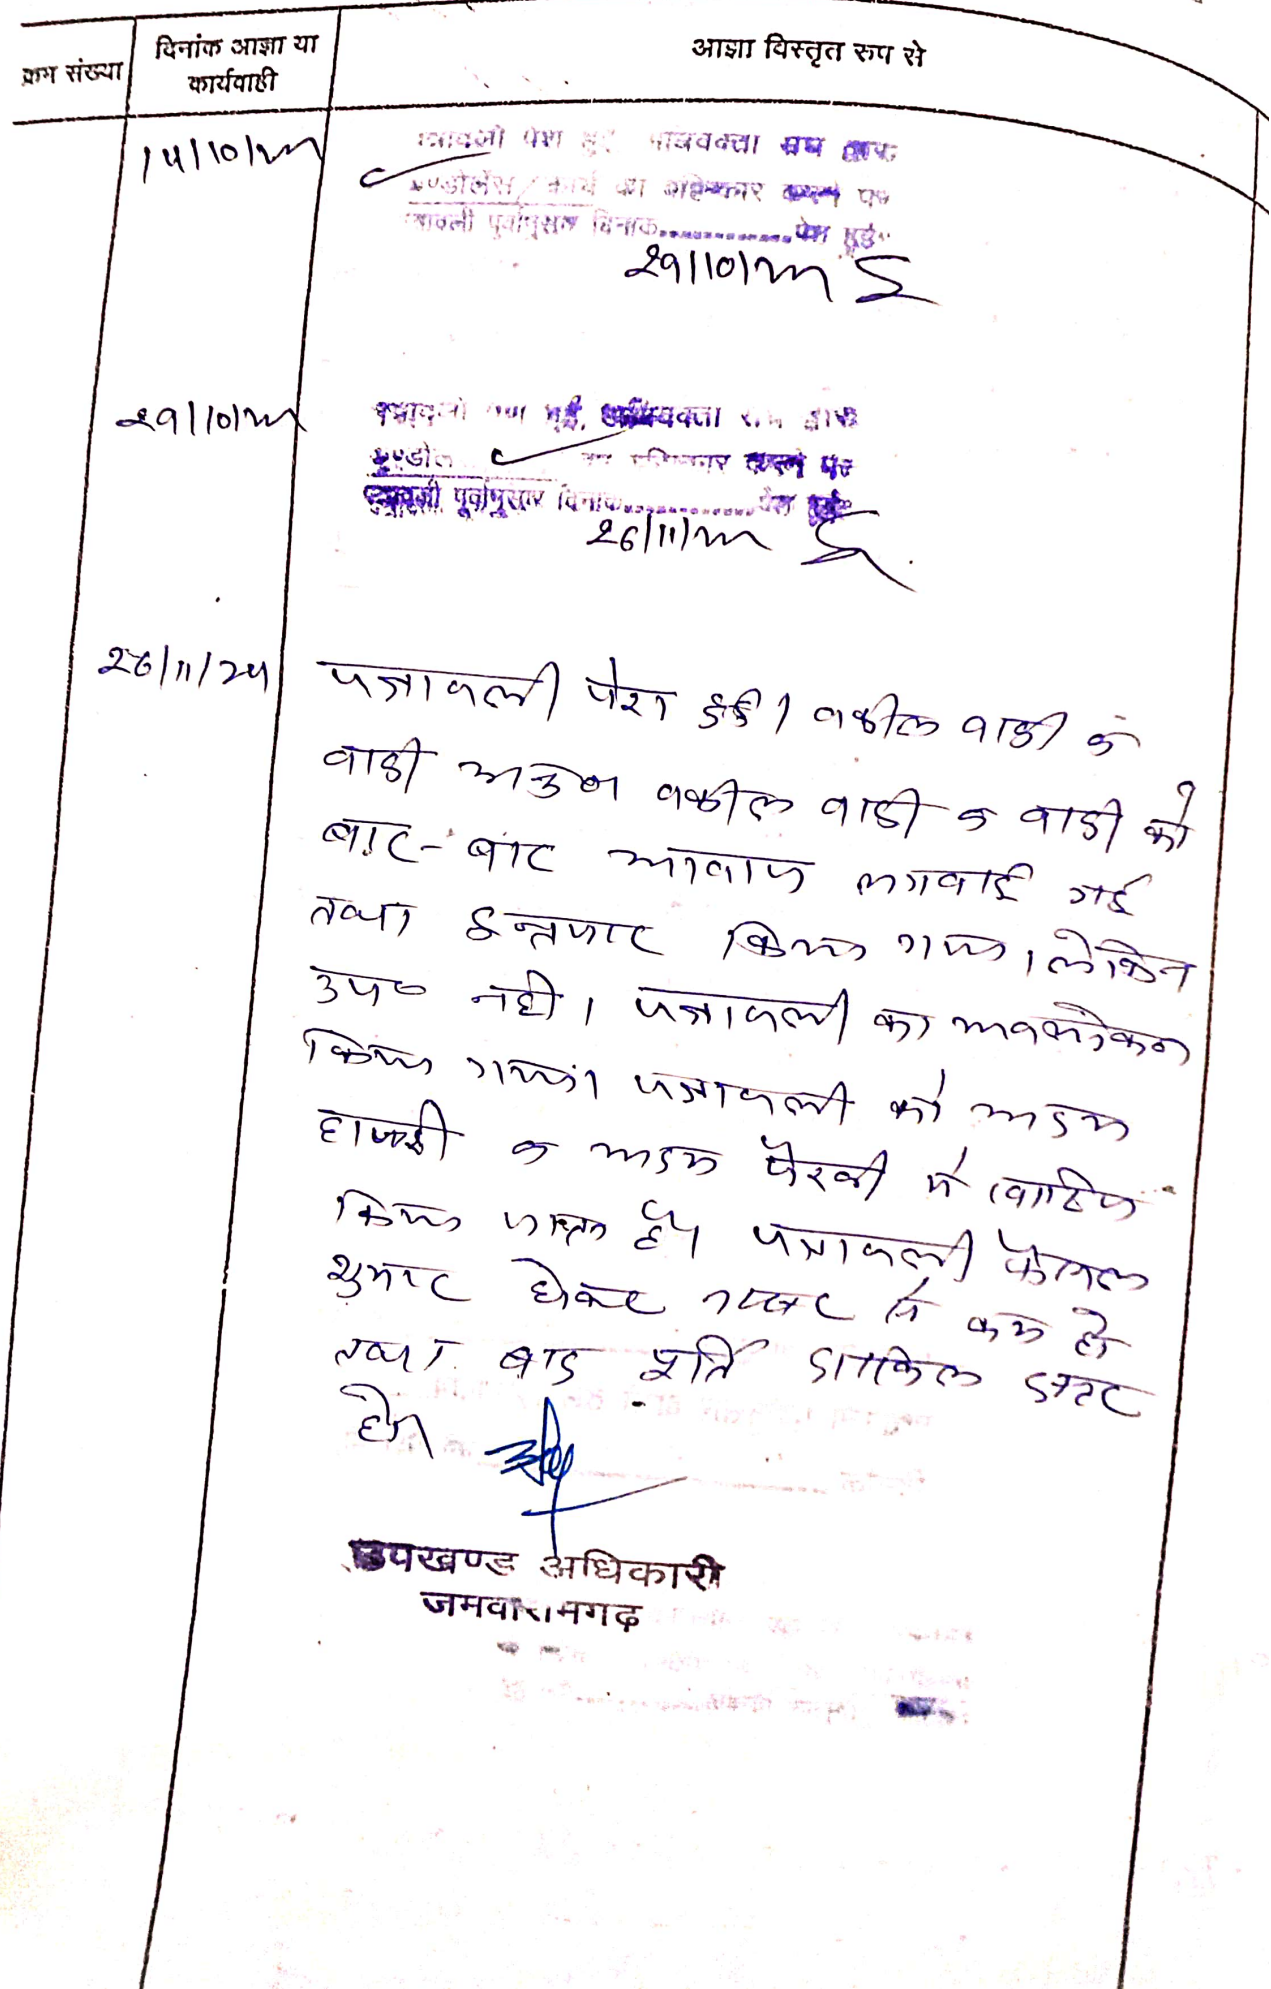 क्रम संख्या
दिनांक आज्ञा या
कार्यवाही
आज्ञा विस्तृत रूप से
14/10/24
पेश हुई
कार्य का बहिष्कार करने पर
पूर्वानुसार दिनांक.............पेश हुई
29/10/24
29/10/24
हुई, अभिवक्ता
करने पर
पूर्वानुसार दिनांक.............पेश हुई
26/11/24
26/11/24
पत्रावली पेश हुई। वकील वादी व
वादी वकील वादी व वादी को
बार-बार आवाज लगवाई गई
तथा इन्तजार किया गया। लेकिन
उप० नहीं। पत्रावली का अवलोकन
किया गया। पत्रावली को अदम
हाजरी व अदम पैरवी में खारिज
किया जाता है। पत्रावली फैसल
शुमार होकर नम्बर से कम हो
तथा बाद पूर्ति दाखिल दफ्तर
हो।
उपखण्ड अधिकारी
जमवारामगढ़